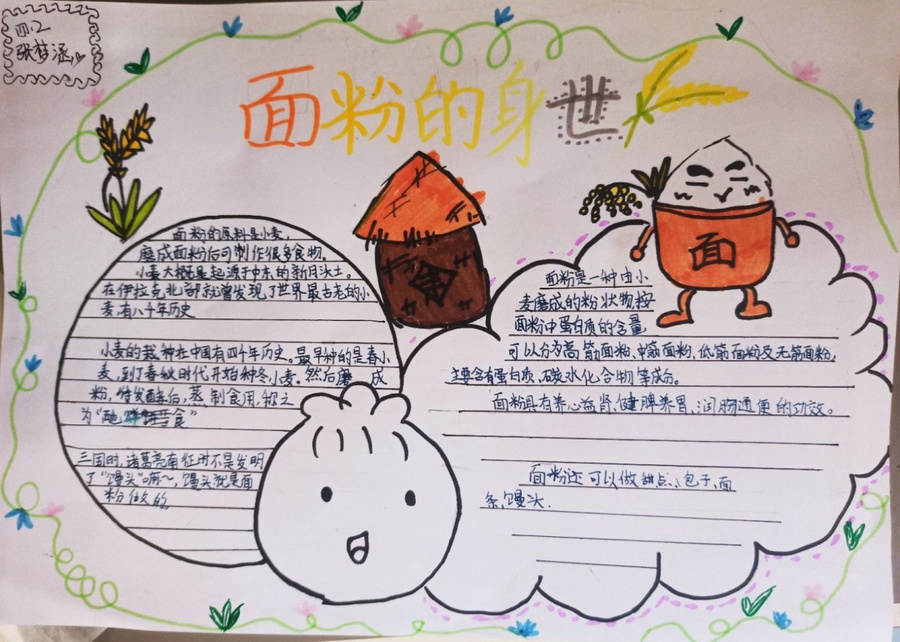 四.2
张梦涵
面粉的身世
面粉的原料是小麦,
磨成面粉后可制作很多食物。
小麦大概是起源于中东的新月沃土。
在伊拉克北部就曾发现了世界最古老的小
麦,有八千年历史
小麦的栽种在中国有四千年历史。最早种的是春小
麦,到了春秋时代开始种冬小麦。然后磨成
粉,待发酵后,蒸制食用,称之
为“酏食”
三国时,诸葛亮南征时不是发明
了“馒头”嘛~,馒头就是面
粉做的。
面
面粉是一种由小
麦磨成的粉状物按
面粉中蛋白质的含量
可以分为高筋面粉,中筋面粉,低筋面粉及无筋面粉,
主要含有蛋白质、碳水化合物等成分。
面粉具有养心益肾,健脾养胃,润肠通便的功效。
面粉还可以做甜点、包子、面
条,馒头.